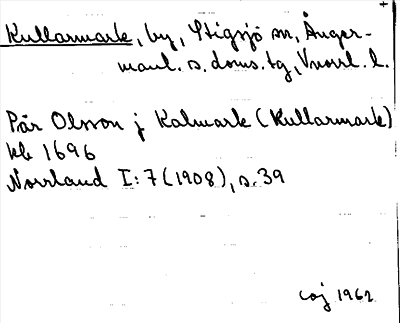 Kullarmark, by, Stigsjö sn, Ånger-
manl. s. doms. tg, Vnorrl. l.
Pär Olsson j Kalmark (Kullarmark)
kb 1696
Norrland I:7 (1908), s. 39
CEJ 1962